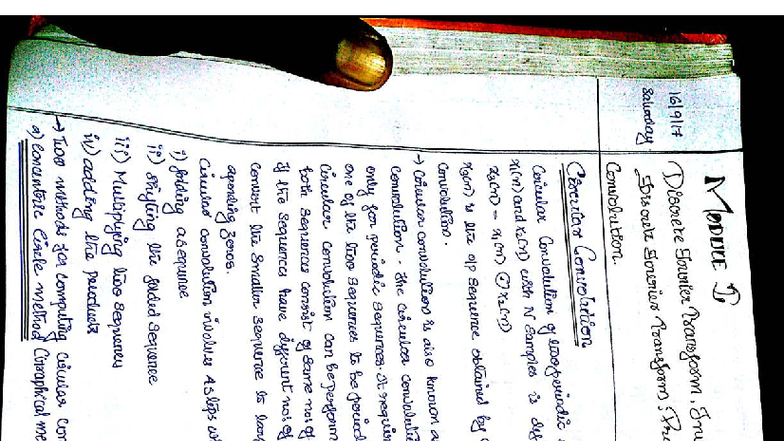 16/9/17
Saturday
MODULE I
Discrete Fourier Transform, Inv
Discrete Fourier Transform; Pro
Convolution
Circular Convolution
Circular Convolution of two periodic
x₁(n) and x₂(n) with N samples is def
x₃(n) = x₁(n) Ⓝ x₂(n)
x₃(n) is the o/p sequence obtained by c
Convolution.
→ Circular convolution is also known a
Convolution. The circular convolutio
only for periodic sequences. It requir
one of the two sequences to be period
Circular convolution can be perform
both sequences consist of same no: of
if the sequences have different no: of
convert the smaller sequence to larg
apending zeros.
Circular convolution involves 4 steps wh
i) folding a sequence
ii) Shifting the folded sequence
iii) Multiplying two sequences
iv) adding the products
→ Two methods for computing circular con
a) Concentric Circle method (Graphical me